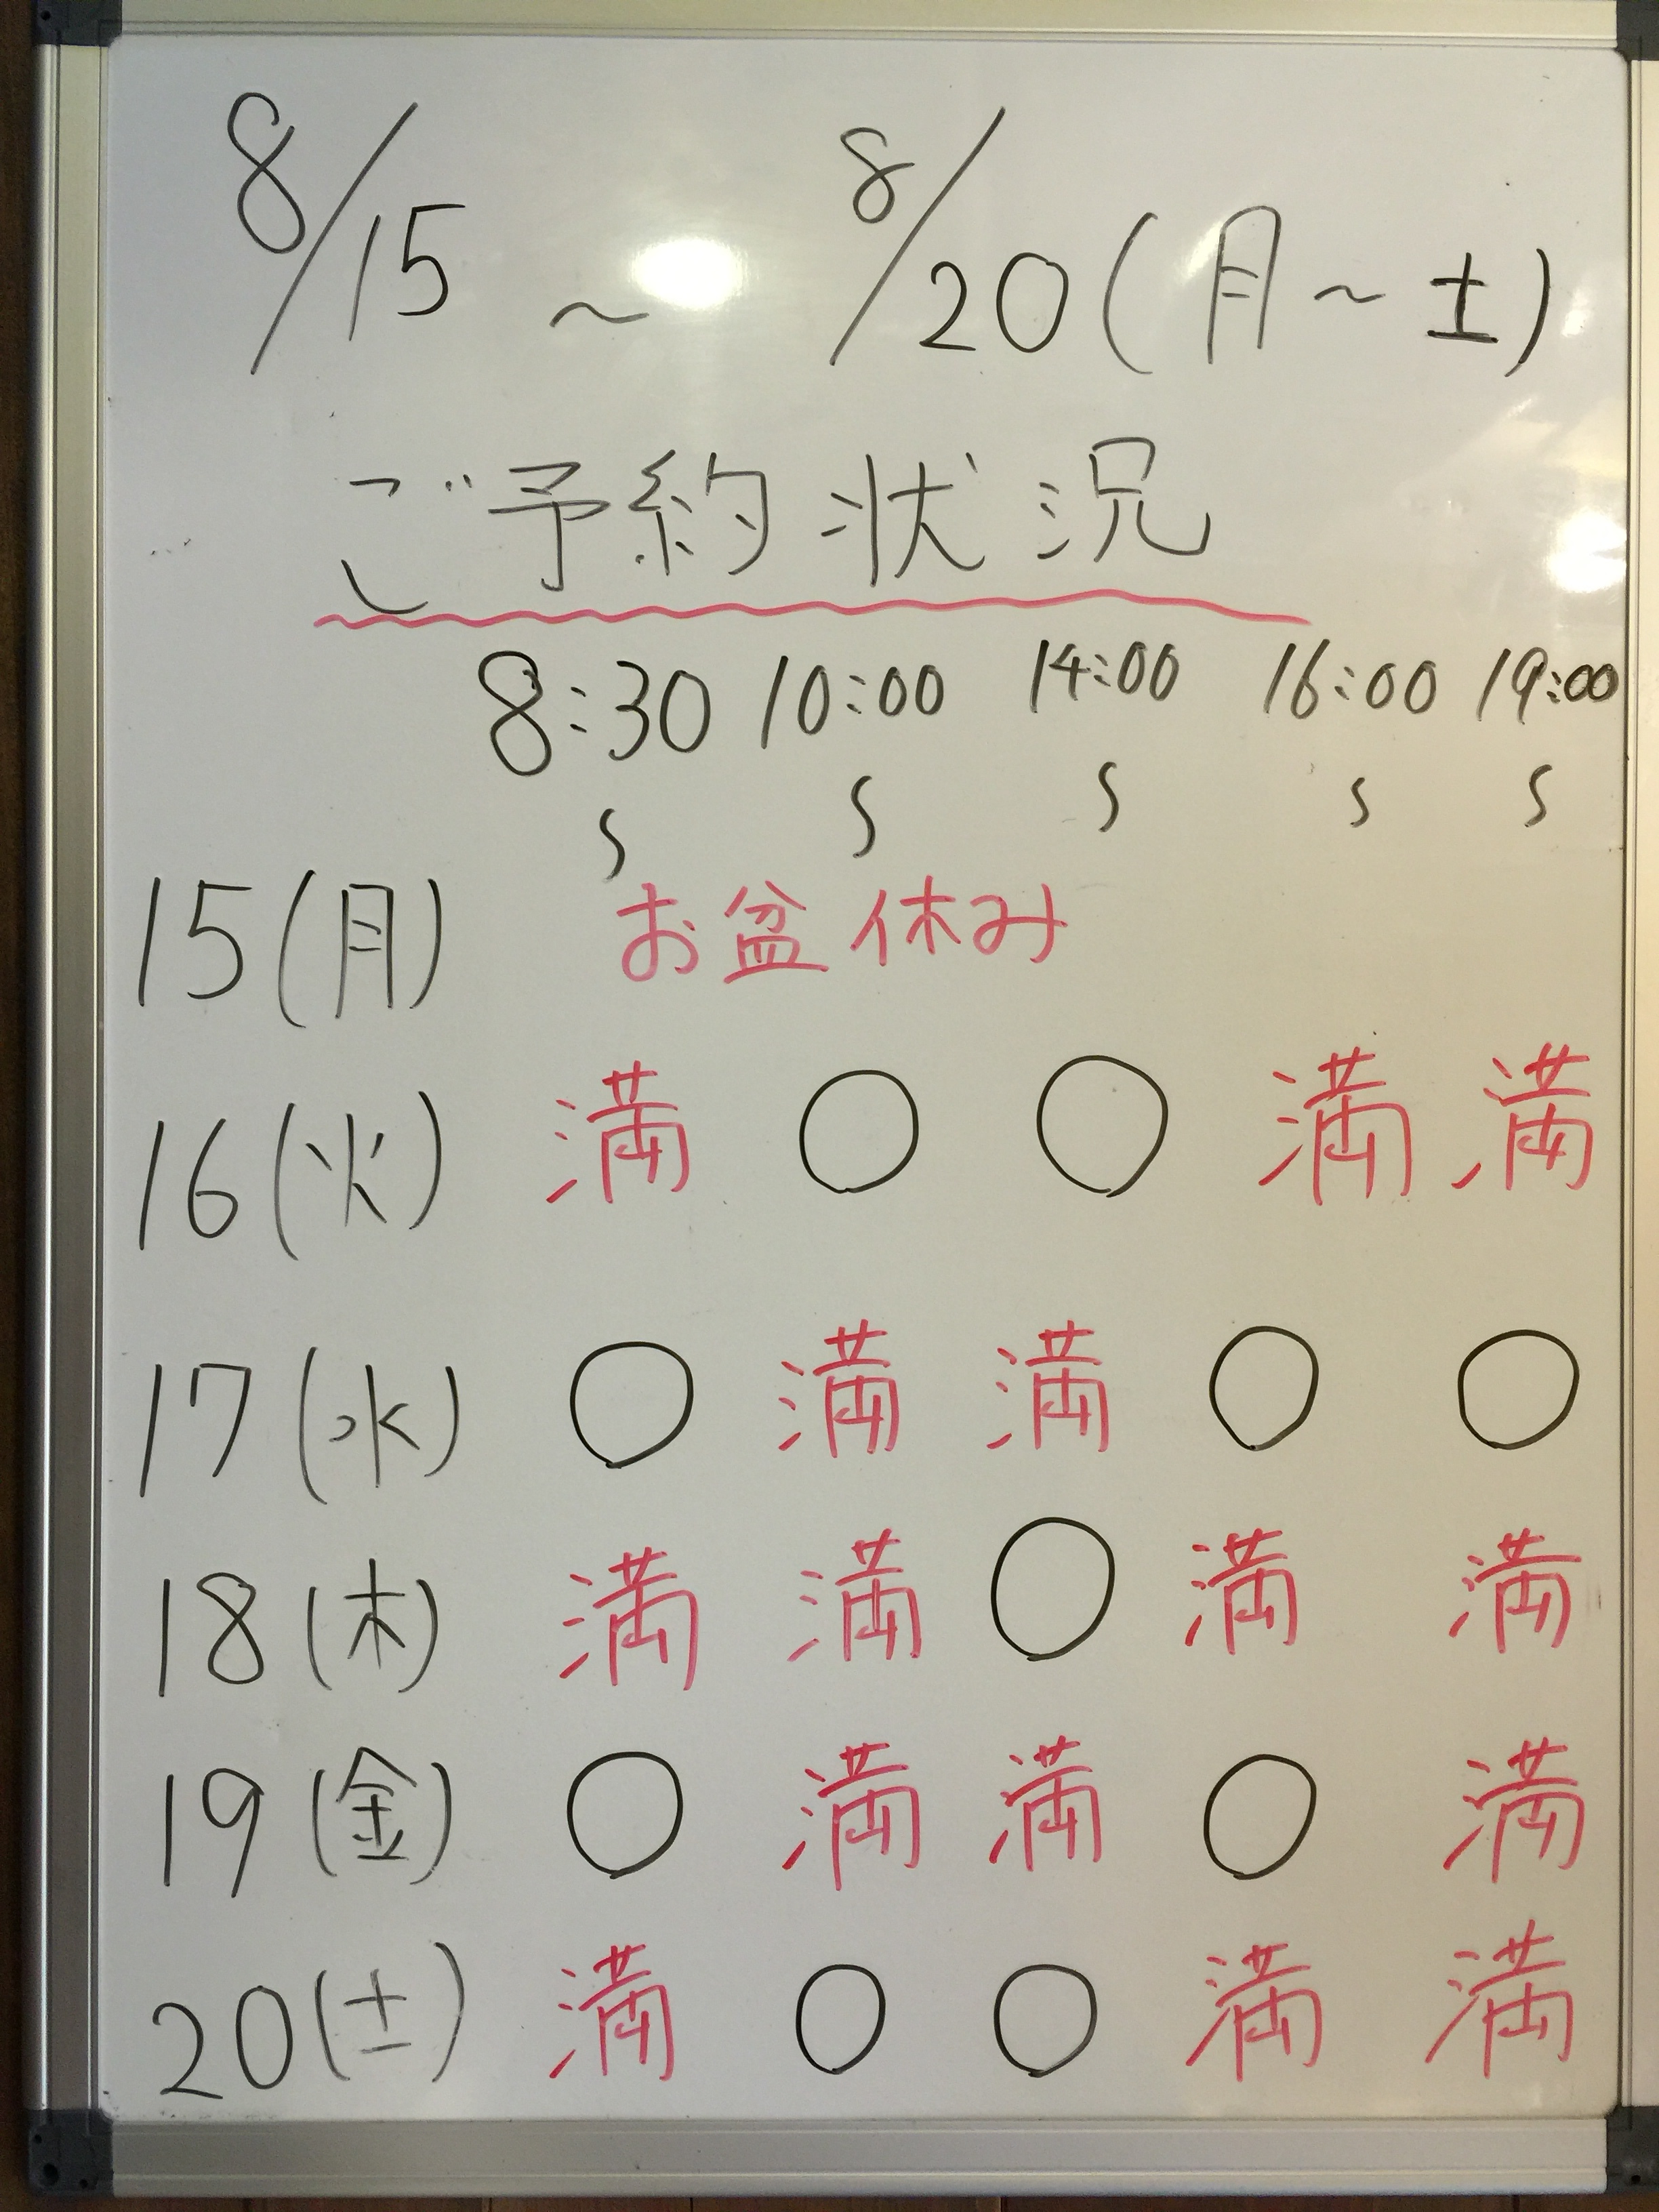 8/15 ～ 8/20(月～土)
ご予約状況
8:30 10:00 14:00 16:00 19:00
〜 〜 〜 〜 〜
15(月) お盆休み
16(火) 満 ○ ○ 満 満
17(水) ○ 満 満 ○ ○
18(木) 満 満 ○ 満 満
19(金) ○ 満 満 ○ 満
20(土) 満 ○ ○ 満 満